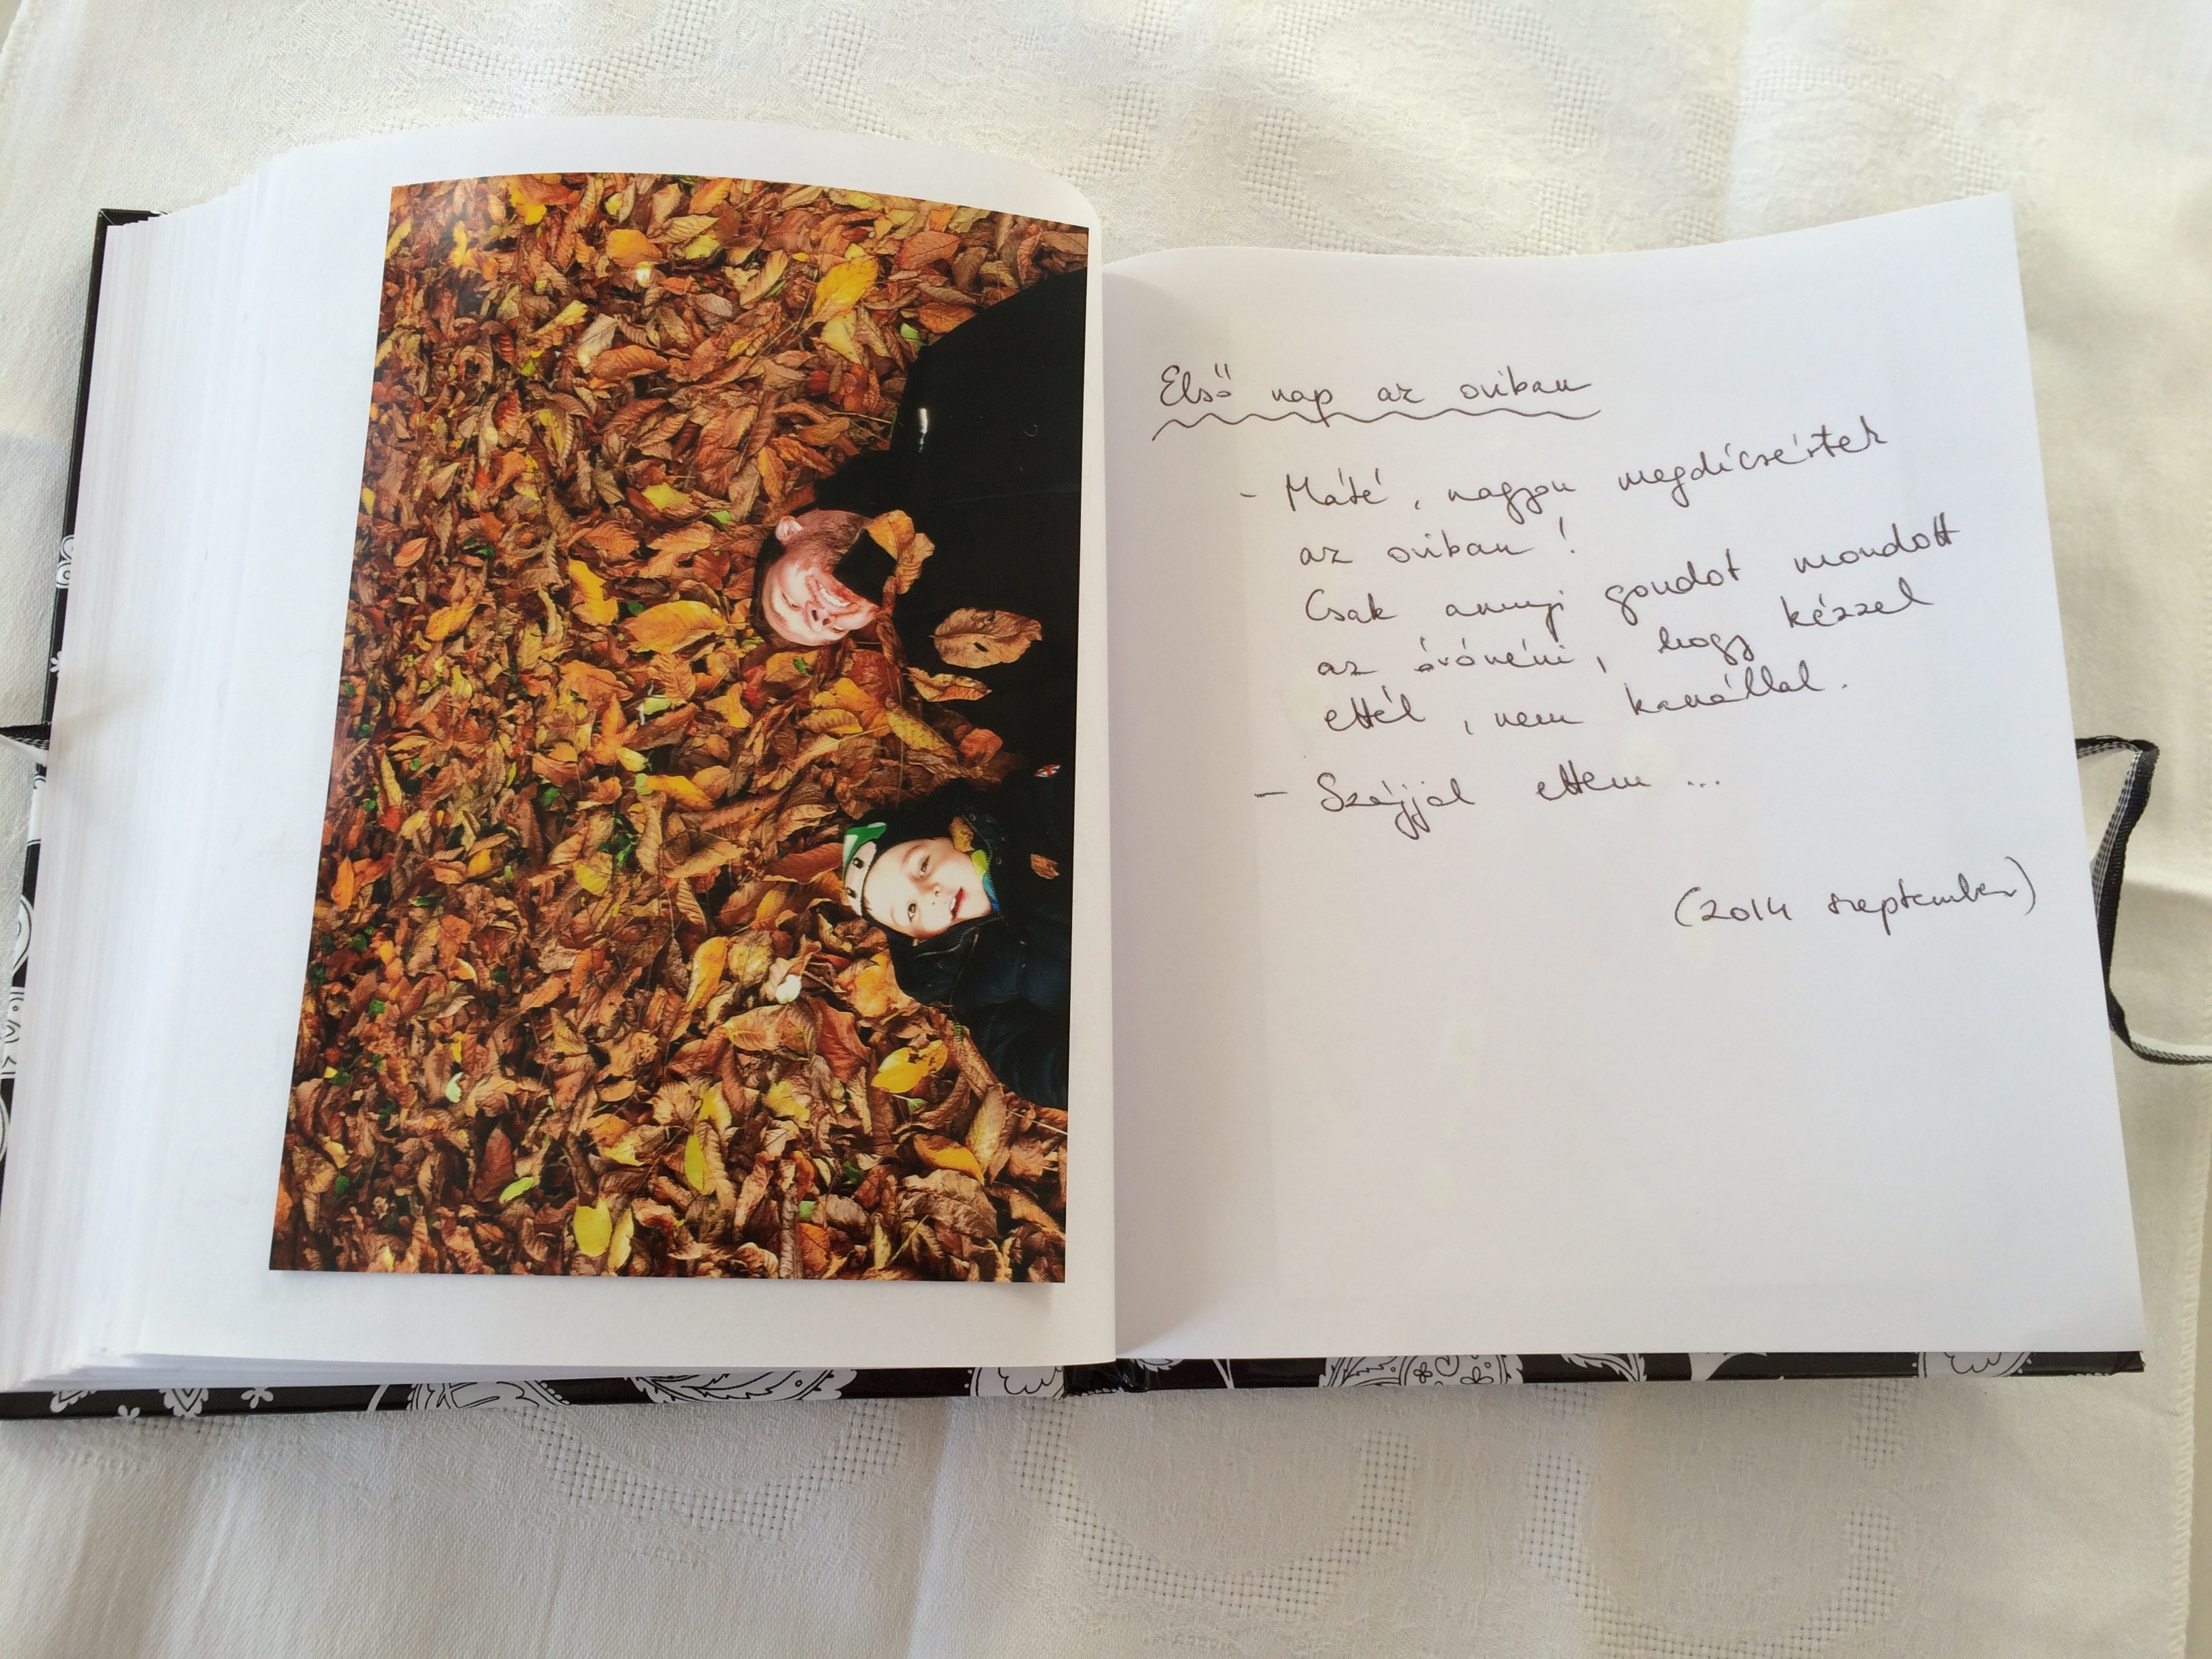 Első nap az oviban
- Máté, nagyon megdícsértek
az oviban!
Csak annyi gondot mondott
az óvónéni, hogy kézzel
ettél, nem kanállal.
- Szájjal ettem...
(2014 szeptember)